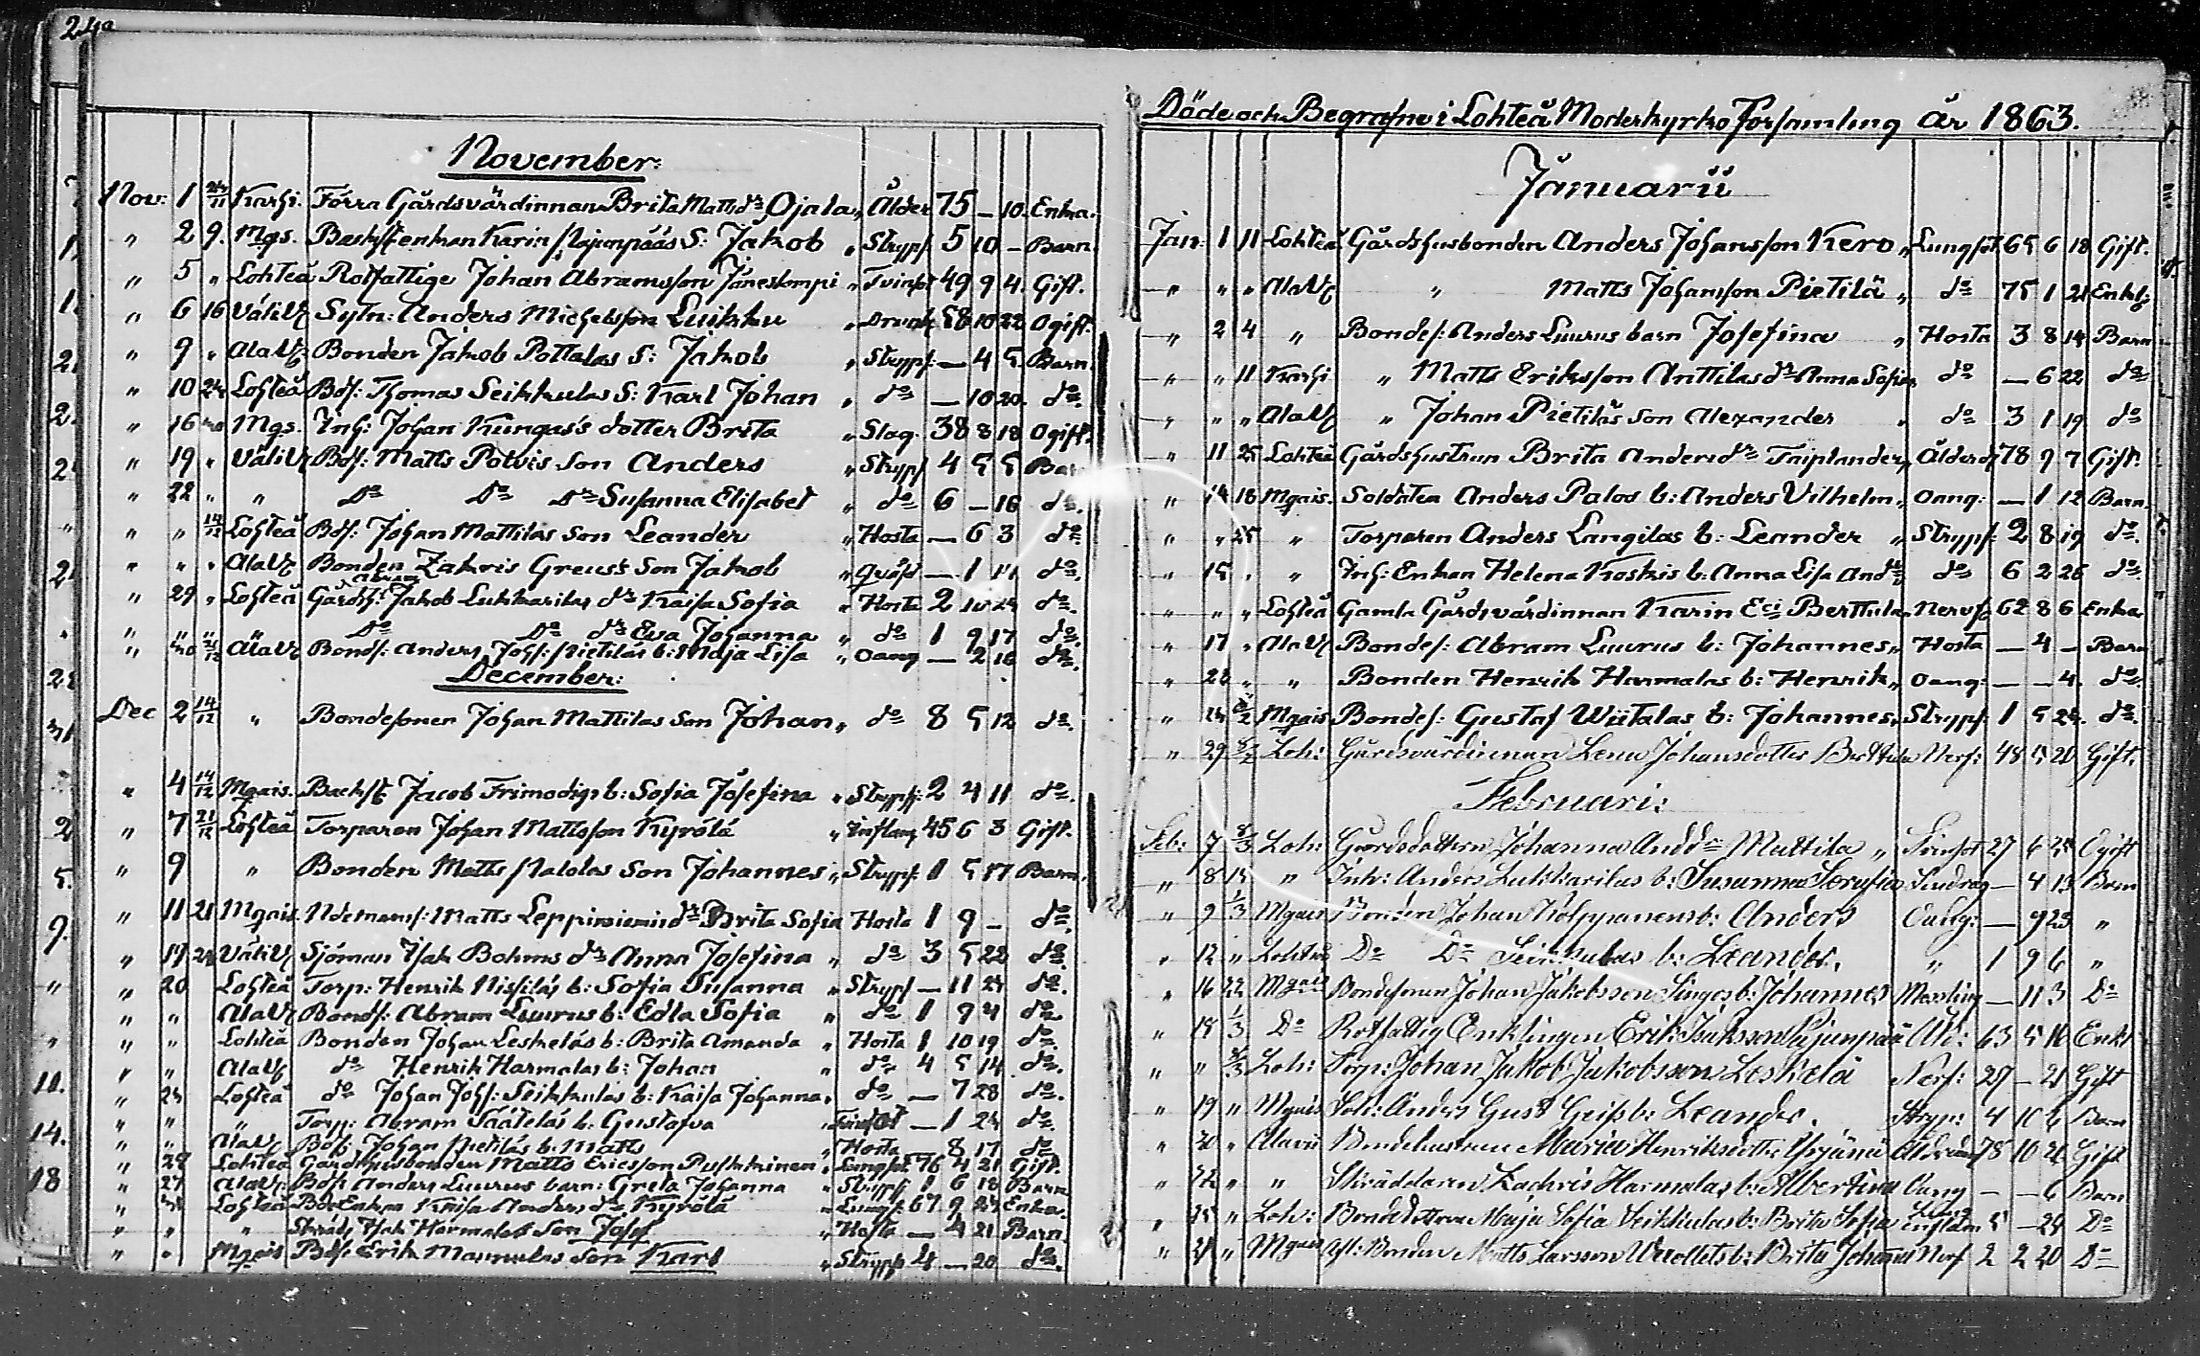 November:
Nov: 1 24/11 Karhi. Förra Gårdsvärdinnan Brita Matts dr Ojala „ Ålder 75 – 10. Enka.
„ 2 9. Mgs. Enkan Karin S: Jakob „ Strypf. 5 10 – Barn.
„ 5 „ Lohteå Rotfattige Johan Abramsson Jäneslampi „ Tvinsot 49 9 4. Gift.
„ 6 16 Välivj Sytn: Anders Michelsson Luikku „ Drunk. 58 10 22 Ogift.
„ 9 „ Alavj Bonden Jakob Pottalas S: Jakob „ Strypf: – 4 5 Barn.
„ 10 24 Lohteå Bds: Thomas Seikkulas S: Karl Johan „ do – 10 20. do.
„ 16 30 Mgs. Inh: Johan Kungas's dotter Brita „ Slag. 38 8 18 Ogift.
„ 19 „ Välivj Bds: Matts Polvis son Anders „ Strypf 4 5 5 Barn
„ 22 „ „ Do Do Dr Susanna Elisabet „ do 6 – 16 do.
„ „ 14/12 Lohteå Bds: Johan Mattilas son Leander „ Hosta – 6 3 do
„ „ „ Alavj Bonden Zakris Greus's son Jakob „ – 1 do.
„ 29 „ Lohteå Gårdsf: Abram Jakob Lukkarilas dr Kaisa Sofia „ Hosta 2 10 24 do.
„ „ „ Do Do dr Eva Johanna „ do 1 9 17 do.
„ 30 21/12 Alavj Bonds: Anders Johs: Pietiläs b: Maja Lisa „ Oang – 2 16 do.
December:
Dec 2 14/12 „ Bondesonen Johan Mattilas son Johan „ do 8 5 12 do.
„ 4 14/12 Mgais. Backst Jacob Frimodigs b: Sofia Josefina „ Strypf: 2 4 11 do.
„ 7 21/12 Lohteå Torparen Johan Mattsson Kyrölä „ Inflam 45 6 3 Gift.
„ 9 „ Bonden Matts son Johannes „ Strypf: 1 5 17 Barn.
„ 11 21 Mgais Ndemans: Matts Leppiniemis dr Brita Sofia Hosta 1 9 – do.
„ 19 28 Välivj Sjöman Isak Bohms dr Anna Josefina „ do 3 5 22 do.
„ 20 Lohteå Torp: Henrik Nissiläs b: Sofia Susanna „ Strypf – 11 24 do.
„ „ Alavj Bonds: Abram Luurus b: Edla Sofia „ do 1 9 4 do
„ „ Lohteå Bonden Johan Leskeläs b: Brita Amanda „ Hosta 1 10 19 do.
„ „ Alavj do Henrik Harmalas b: Johan „ do 4 5 14 do.
„ 24 Lohteå do Johan Johs: Seikkulas b: Kaisa Johanna „ do – 7 28 do.
„ „ „ Torp: Abram Sääteläs b: Gustafva „ – 1 24 do.
„ „ Alavj Bds: Johan Pietiläs b: Matts „ Hosta – 8 17 do
„ 28 Lohteå Gårdshusbonden Matts Ericsson Puskkinen „ Lungsot 76 4 21 Gift.
„ 27 Alavj Bds: Anders Luurus barn: Greta Johanna „ Strypf: 1 6 18 Barn
„ 31 Lohteå Enkan Kaisa Anders dr Kyrölä „ Lungs: 67 9 24 Enka.
„ „ „ Skrädd: Isak Harmalas son Josef „ Hosta – 4 21 Barn
„ „ Mgais Bds: Erik Maunulas son Karl „ Strypf 4 – 20 do.
Döde och Begrafne i Lohteå Moderkyrko Församling år 1863.
Januarii
Jan: 1 11 Lohteå Gårdshusbonden Anders Johansson Kero „ Lungsot 65 6 18 Gift.
„ „ „ Alavj „ Matts Johansson Pietilä „ do 75 1 21 Enkl:
„ 2 4 „ Bondes: Anders Luurus barn Josefina „ Hosta 3 8 14 Barn
„ „ 11 Karhi „ Matts Eriksson Anttilas dr Anna Sofia do – 6 22 do
„ „ „ Alavj „ Johan Pietiläs son Alexander „ do 3 1 19 do
„ 11 25 Lohteå Gårdshustrun Brita Anders dr Taiplander „ Ålderd 78 9 7 Gift.
„ 14 18 Mgais. Soldaten Anders Palos b: Anders Vilhelm „ Oang: – 1 12 Barn.
„ „ 25 „ Torparen Anders Langilas b: Leander „ Strypf: 2 8 19 do.
„ 15 „ „ Inh: Enkan Helena Koskis b: Anna Lisa And dr do 6 2 26 do.
„ „ „ Lohteå Gamla Gårdsvärdinnan Karin Eci Berttula „ Nervf 62 8 6 Enka
„ 17 „ Alavj Bondes: Abram Luurus b: Johannes „ Hosta – 4 – Barn
„ 22 „ „ Bonden Henrik Harmalas b: Henrik „ Oang: – – 4. do.
„ 24 Mgais Bondes: Gustaf Wiitalas b: Johannes „ Strypf: 1 5 24. do.
„ 29 8/2 Loh: Gårdsvärdinnan Lena Johansdotter Berttula Nerf: 48 5 20 Gift.
Februari:
Feb: 7 8/3 Loh: Gårdsdottern Johanna And dr Mattila „ Tvinsot 27 6 28 Ogift
„ 8 15 „ Inh: Anders Lukkarilas b: Susanna Serafia – 4 13 Barn
„ 9 1/3 Mgais Bonden Johan Kolppanens b: Anders Oang: – 9 23 „
„ 12 „ Lohteå Do Do Seikkulas b: Leander. „ 1 9 6 „
„ 16 22 Mgais Bondesonen Johan Jakobsson Singos b: Johannes Messling – 11 3 Do
„ 18 1/3 Do Rotfattig Enklingen Erik Isaksson Åld: 63 5 16 Enkl
„ „ 8/3 Loh: Torp: Johan Jakob Jakobsson Leskelä Nerf: 27 – 21 Gift
„ 19 „ Mgais Sol: Anders Gust Greis b: Leander. Stryp: 4 10 6 Barn
„ 20 „ Alavii Bondehustrun Maria Henriksdotter 78 10 26 Gift
„ 22 „ „ Skräddaren Zachris Harmalas b: Albertina Oang – – 6 Barn
„ 25 „ Loh: Bondedottern Maja Sofia Seikkulas b: Brita Sofia 5 – 28 Do
„ 27 „ Mgais Bonden Matts Larsson b: Brita Johanna Nerf 2 2 20 Do